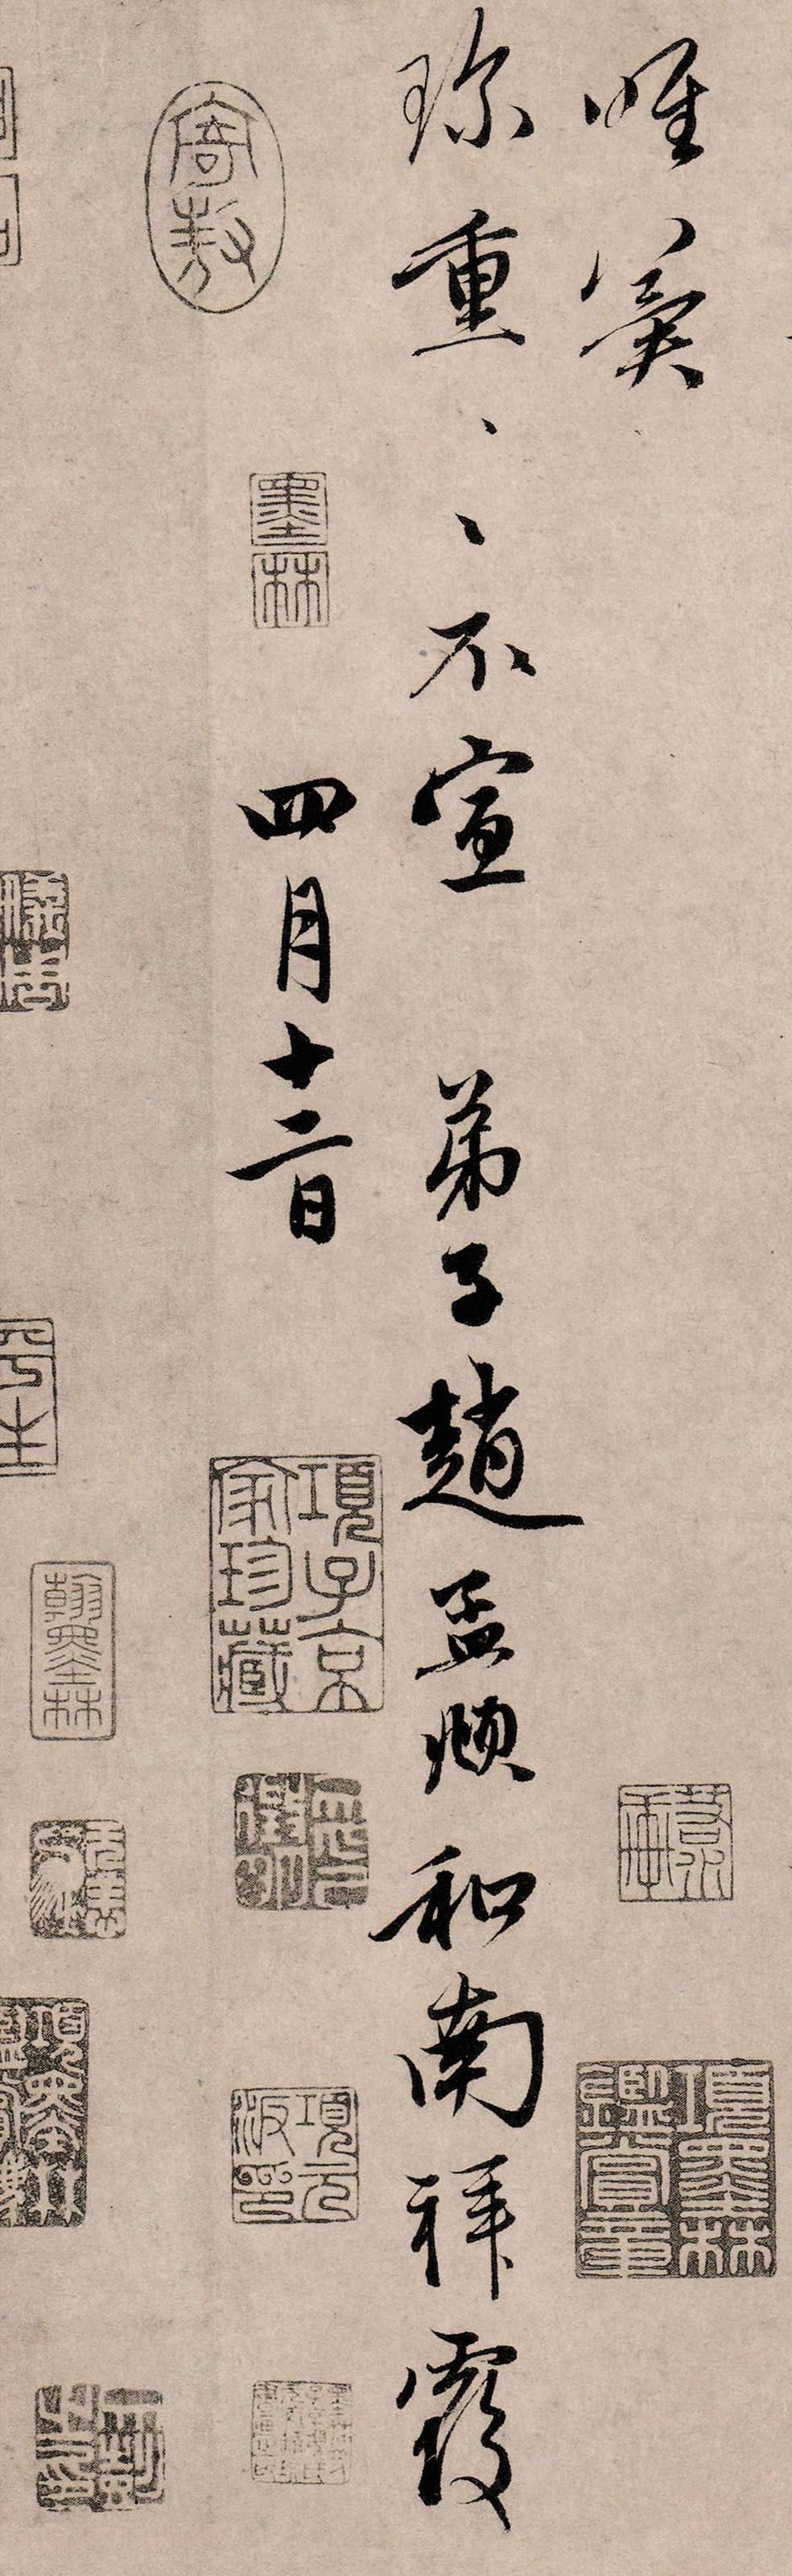 唯冀
項墨林鑑賞章
珎重、、不宣 弟子趙孟頫和南拜覆
四月十二日
寄敖
墨林
項子京家珍藏
項元汴印
翰墨林